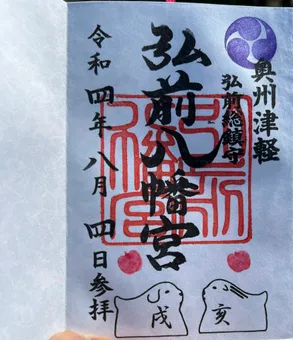 奥州津軽
弘前総鎮守
弘前八幡宮
令和四年八月四日参拝
亥
戌